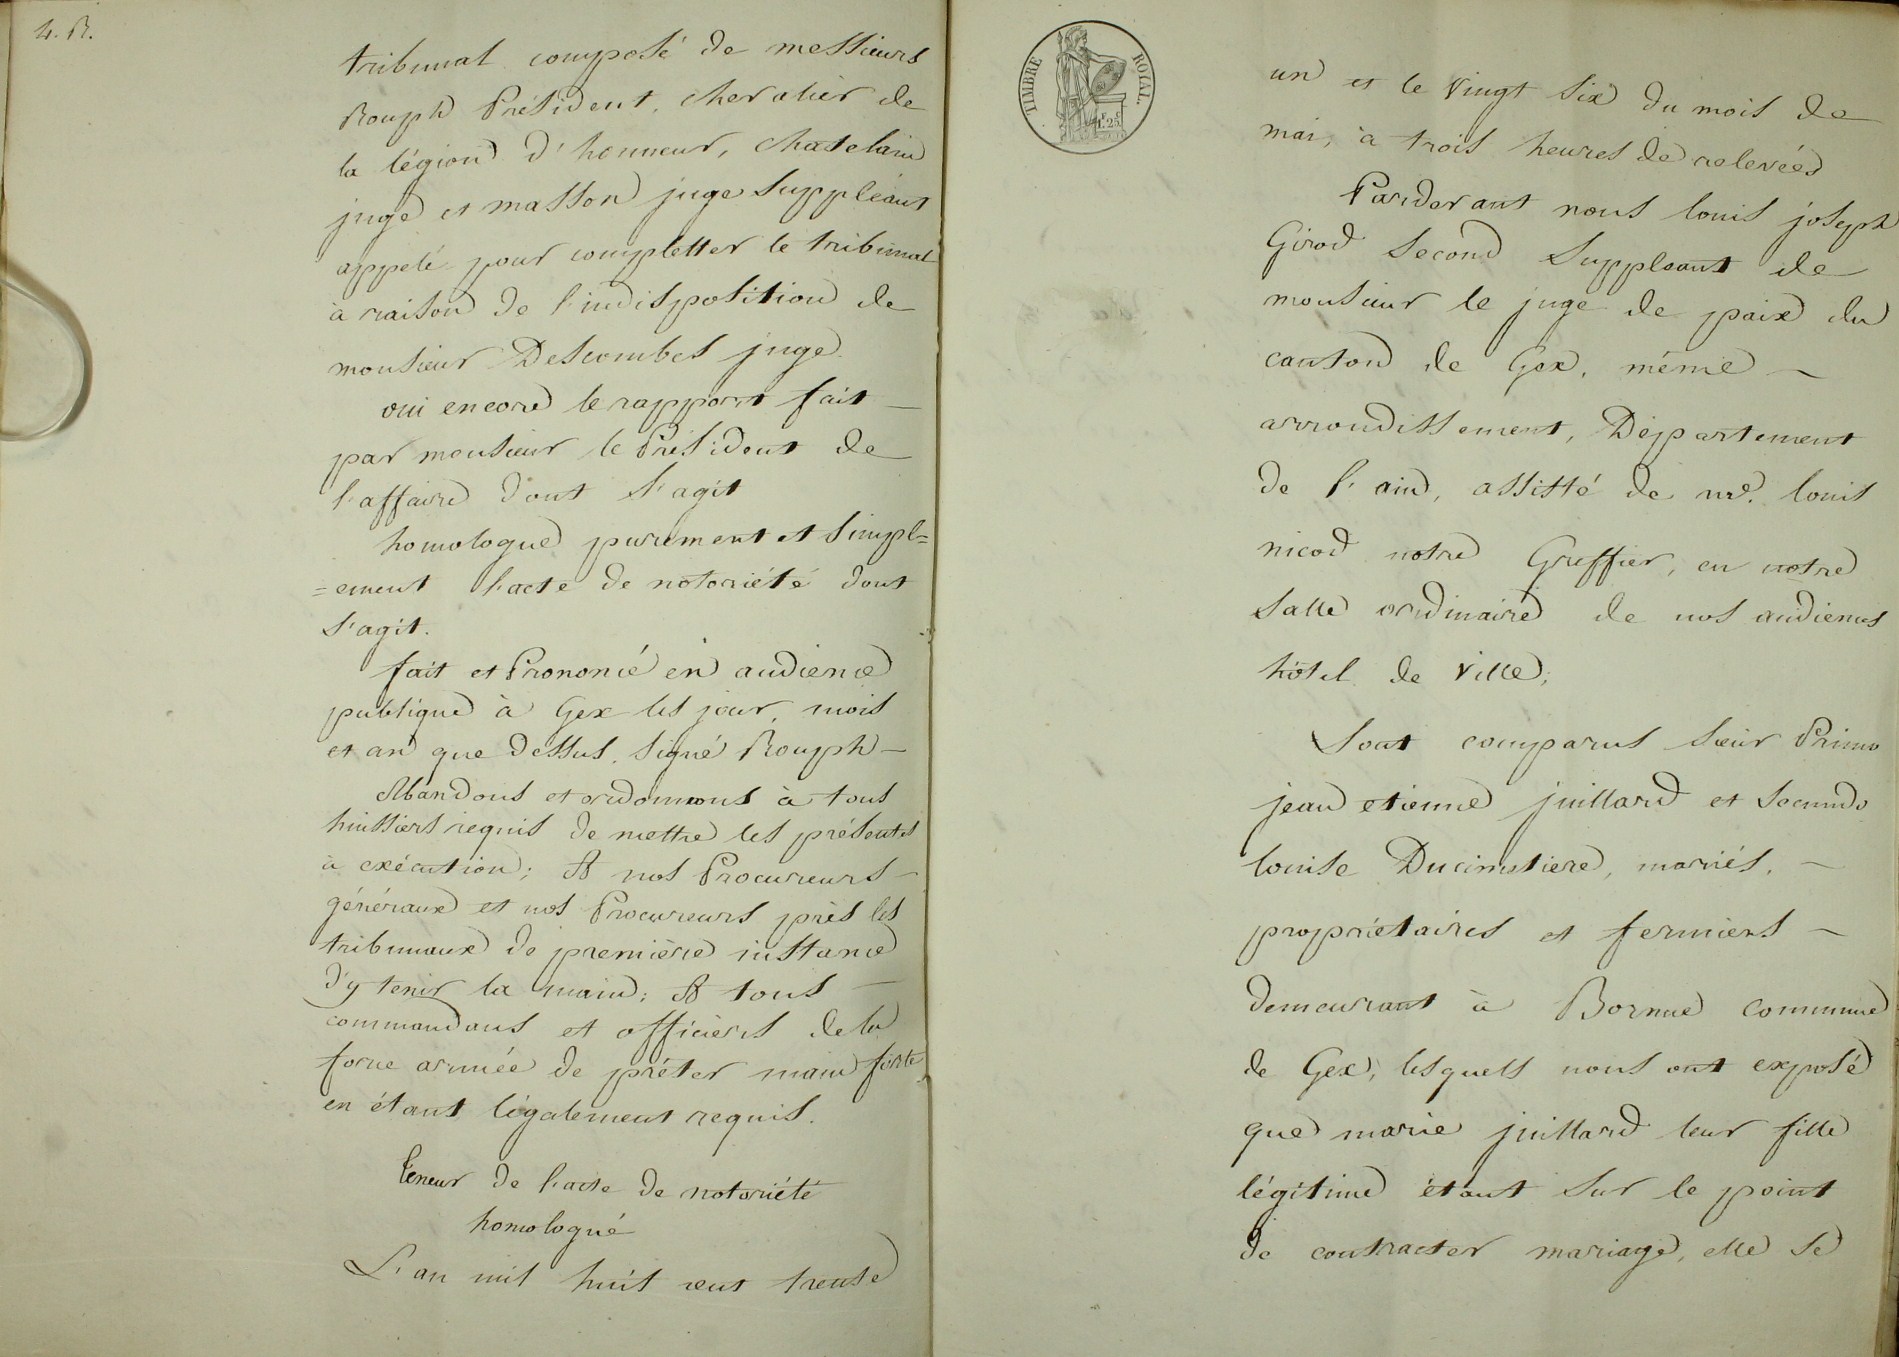 4. R.
tribunal composé de messieurs
Rouph Président, chevalier de
la légion d'honneur, chatelain
juge et masson juge suppléant
appelé pour completter le tribunal
à raison de l'indisposition de
monsieur Descombes juge.
oui encore le rapport fait —
par monsieur le Président de
l'affaire dont s'agit
homologue purement et simpl=
=ement l'acte de notoriété dont
s'agit.
fait et Prononcé en audience
publique à Gex les jour, mois
et an que dessus. signé Rouph —
Mandons et ordonnons à tous
huissiers requis de mettre les présentes
à exécution; A nos Procureurs —
généraux et nos Procureurs près les
tribunaux de première instance
d'y tenir la main; A tous —
commandans et officiers de la
force armée de prêter main forte
en étant légalement requis.
Teneur de l'acte de notoriété
homologué
L'an mil huit cent trente
TIMBRE ROYAL.
1f. 25c
un et le vingt six du mois de
mai, à trois heures de relevées
Pardevant nous louis joseph
Girod second suppleant de
monsieur le juge de paix du
canton de Gex, même —
arrondissement, Département
de l'ain, assisté de me. louis
nicod notre Greffier, en notre
salle ordinaire de nos audiences
hôtel de ville;
Sont comparus sieur Primo
jean etienne juillard et secundo
louise Ducimetiere, mariés, —
propriétaires et fermiers —
demeurant à Bornue commune
de Gex, lesquels nous ont exposé
que marie juillard leur fille
légitime étant sur le point
de contracter mariage, elle se